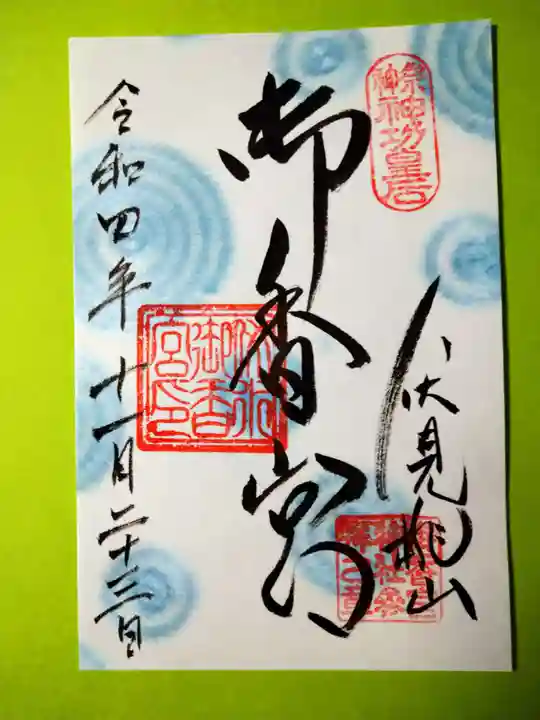 祭神
神功皇后
伏見桃山
御香宮
御香
宮印
令和四年十一月二十三日